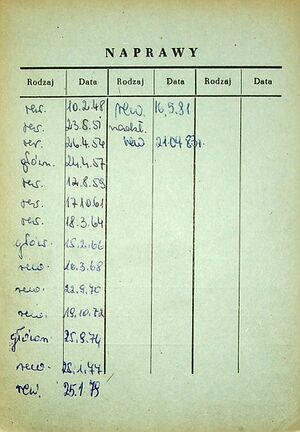 NAPRAWY
Rodzaj Data Rodzaj Data Rodzaj Data
rew. 10.2.48 rew. 16.9.81
rew. 23.5.51 nadzl.
rew. 26.4.54 rew 21.04.83r.
główn. 24.4.57
rew. 12.8.59
rew. 17.10.61
rew. 18.3.64
główn. 15.2.66
rew. 16.3.68
rew. 22.9.70
rew. 19.10.72
główn 25.9.74
rew. 28.1.77
rew. 25.1.79